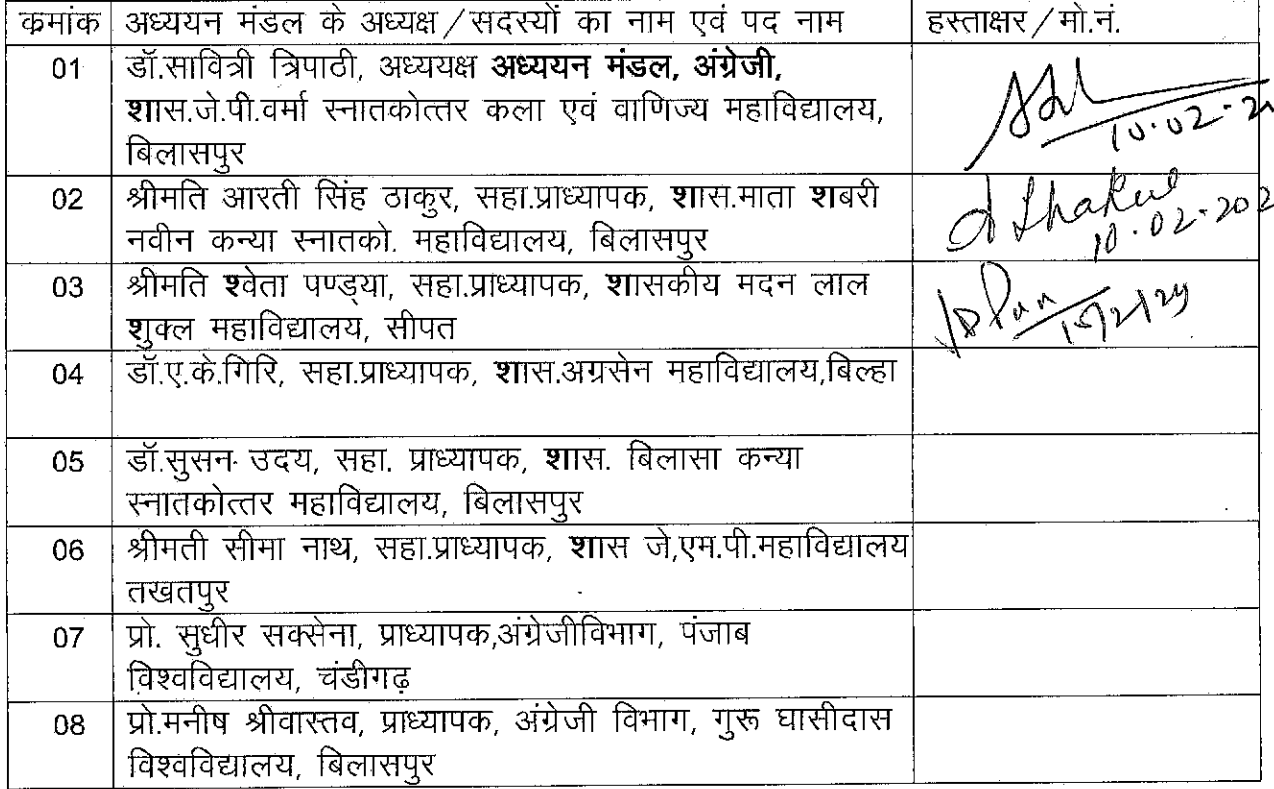 क्रमांक अध्ययन मंडल के अध्यक्ष/सदस्यों का नाम एवं पद नाम हस्ताक्षर/मो.नं.
01 डॉ.सावित्री त्रिपाठी, अध्ययक्ष अध्ययन मंडल, अंग्रेजी,
शास.जे.पी.वर्मा स्नातकोत्तर कला एवं वाणिज्य महाविद्यालय,
बिलासपुर
10.02.2
02 श्रीमति आरती सिंह ठाकुर, सहा.प्राध्यापक, शास.माता शबरी
नवीन कन्या स्नातको. महाविद्यालय, बिलासपुर
Thakur
10.02.202
03 श्रीमति श्वेता पण्ड्या, सहा.प्राध्यापक, शासकीय मदन लाल
शुक्ल महाविद्यालय, सीपत
04 डॉ.ए.के.गिरि, सहा.प्राध्यापक, शास.अग्रसेन महाविद्यालय,बिल्हा
05 डॉ.सुसन उदय, सहा. प्राध्यापक, शास. बिलासा कन्या
स्नातकोत्तर महाविद्यालय, बिलासपुर
06 श्रीमती सीमा नाथ, सहा.प्राध्यापक, शास जे,एम.पी.महाविद्यालय
तखतपुर
07 प्रो. सुधीर सक्सेना, प्राध्यापक,अंग्रेजीविभाग, पंजाब
विश्वविद्यालय, चंडीगढ़
08 प्रो.मनीष श्रीवास्तव, प्राध्यापक, अंग्रेजी विभाग, गुरू घासीदास
विश्वविद्यालय, बिलासपुर